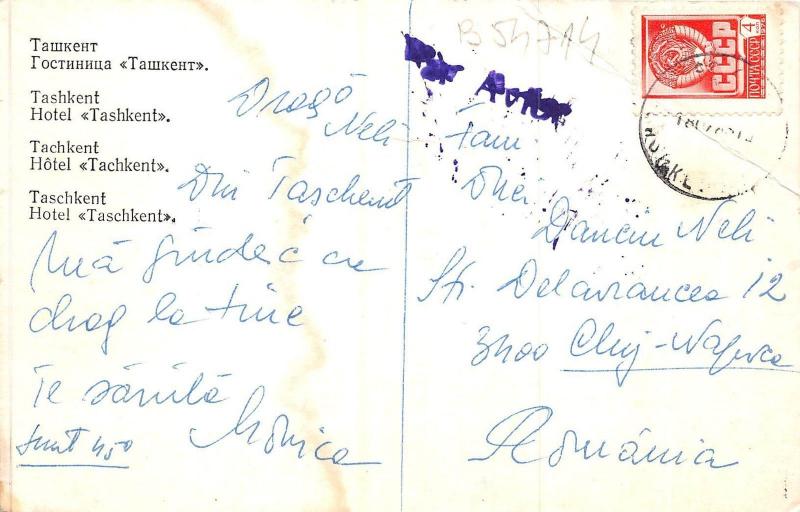 Ташкент
Гостиница «Ташкент».
Tashkent
Hotel «Tashkent».
Tachkent
Hôtel «Tachkent».
Taschkent
Hotel «Taschkent».
Dragă
Neli
Din Taschent
Mă gîndesc cu
drag la tine
Te sărută
Monica
B 54714
Par Avion
СССР
ПОЧТА СССР
4
1976
Fam
Danciu Neli
Str. Delavrancea 12
3400 Cluj-Napoca
România